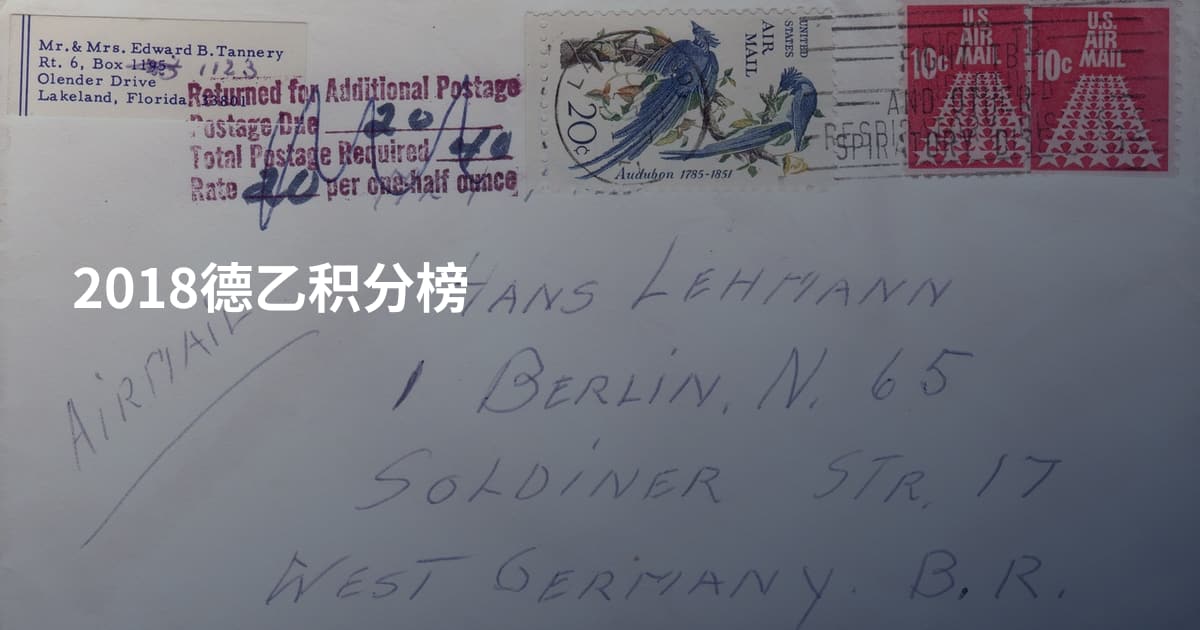 Mr. & Mrs. Edward B. Tannery
Rt. 6, Box 1195 1123
Olender Drive
Lakeland, Florida, 33801
Returned for Additional Postage
Postage Due 20
Total Postage Required 40
Rate 20 per one-half ounce
UNITED STATES
AIR MAIL
20c
Audubon 1785-1851
U.S.
AIR
MAIL
10c
U.S.
AIR
MAIL
10c
AND OTHER
RESPIRATORY
2018德乙积分榜
AIRMAIL
HANS LEHMANN
1 BERLIN, N. 65
SOLDINER STR. 17
WEST GERMANY. B.R.